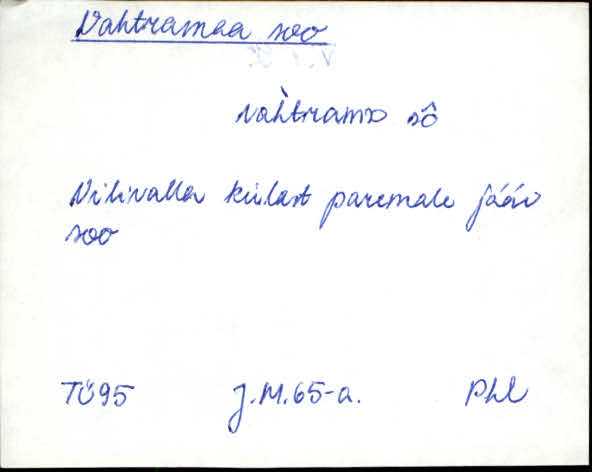 Vahtramaa soo
vah̀tramɒ sô
Vilivalla külast paremale jääv
soo
TÜ95 J.M.65-a. Phl